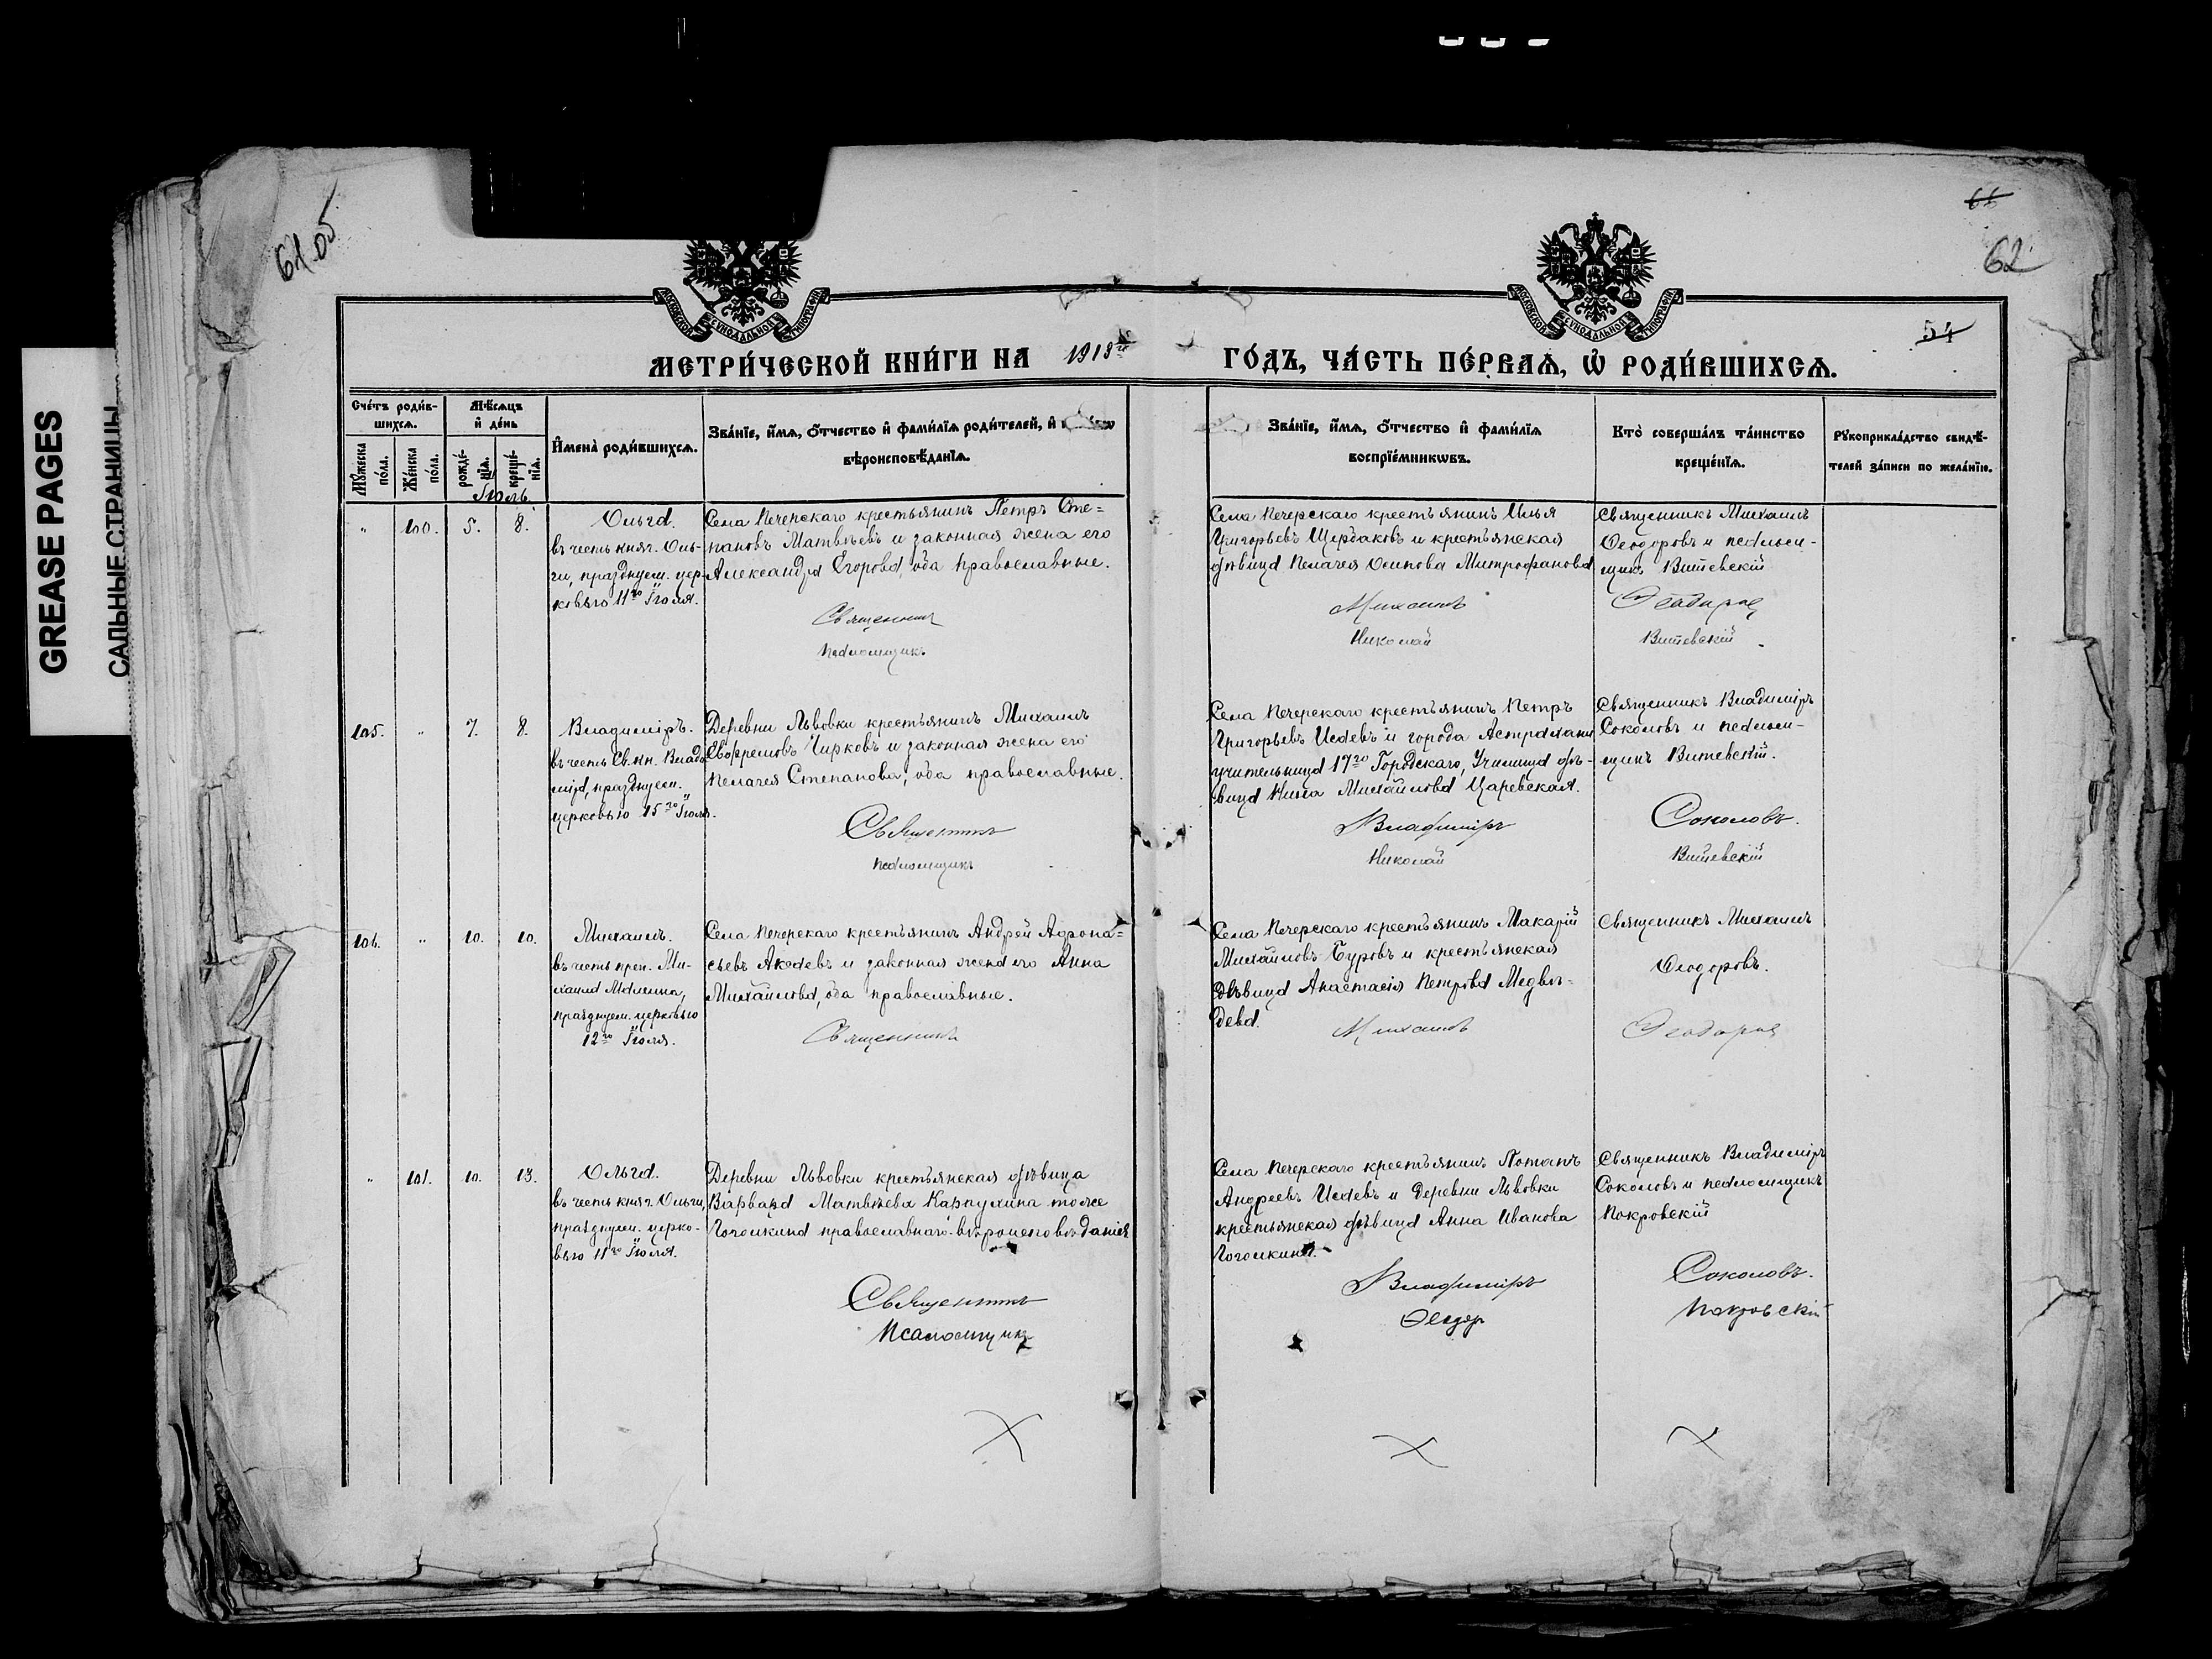 GREASE PAGES
САЛЬНЫЕ СТРАНИЦЫ
61 об
66
62
54
МОСКОВСКОЙ СѴНОДАЛЬНОЙ ТИПОГРАФІИ
МОСКОВСКОЙ СѴНОДАЛЬНОЙ ТИПОГРАФІИ
МЕТРИ́ЧЕСКОЙ КНИ́ГИ НА 1918 ГО́ДЪ, ЧА́СТЬ ПЕ́РВАѦ, Ѡ҆ РОДИ́ВШИХСѦ.
Сче́тъ роди́в-
шихсѧ.
Мꙋ́жеска по́ла.
Же́нска по́ла.
Мѣ́сѧцъ
и҆ де́нь
рожде́-
нїѧ.
креще́-
нїѧ.
И҆мена̀ роди́вшихсѧ.
Зва́нїе, и҆́мѧ, ѻ҆́тчество и҆ фами́лїѧ роди́телей, и҆
вѣроисповѣ́данїѧ.
Зва́нїе, и҆́мѧ, ѻ҆́тчество и҆ фами́лїѧ
воспрїе́мникѡвъ.
Кто̀ соверша́лъ та́инство
креще́нїѧ.
Рꙋкоприкла́дство свидѣ́-
телей за́писи по жела́нїю.
Іюль
" 100. 5. 8.
Ольга.
въ честь княг. Оль-
ги, празднуем. цер-
ковью 11го Іюля.
Села Печерскаго крестьянинъ Петръ Сте=
пановъ Матвѣевъ и законная жена его
Александра Егорова, оба православные.
Священникъ
Псаломщикъ
Села Печерскаго крестьянинъ Илья
Григорьевъ Щербаковъ и крестьянская
дѣвица Пелагея Осипова Митрофанова
Михаилъ
Николай
Священникъ Михаилъ
Ѳеодоровъ и псалом-
щикъ Витевскій
Ѳеодоровъ
Витевскій
105. " 7. 8.
Владиміръ.
въ честь Св. кн. Влади
міра, празднуем.
церковью 15го Іюля.
Деревни Львовки крестьянинъ Михаилъ
Евфремовъ Чирковъ и законная жена его
Пелагея Степанова, оба православные.
Священникъ
Псаломщикъ
Села Печерскаго крестьянинъ Петръ
Григорьевъ Исаевъ и города Астрахани
учительница 17го Городскаго, Училища дѣ-
вица Нина Михайлова Царевская.
Владиміръ
Николай
Священникъ Владиміръ
Соколовъ и псалом-
щикъ Витевскій.
Соколовъ.
Витевскій
106. " 10. 10.
Михаилъ.
въ честь преп. Ми-
хаила Малеина,
празднуем. церковью
12го Іюля.
Села Печерскаго крестьянинъ Андрей Афона=
сьевъ Акаевъ и законная жена его Анна
Михайлова, оба православные.
Священникъ
Села Печерскаго крестьянинъ Макарій
Михайловъ Буровъ и крестьянская
дѣвица Анастасія Петрова Медвѣ-
дева.
Михаилъ
Священникъ Михаилъ
Ѳеодоровъ.
Ѳеодоровъ
" 101. 10. 13.
Ольга.
въ честь княг. Ольги,
празднуем. церко-
вью 11го Іюля.
Деревни Львовки крестьянская дѣвица
Варвара Матвѣева Карпухина тоже
Гоголкина православнаго вѣроисповѣданія
Священникъ
Псаломщикъ
Села Печерскаго крестьянинъ Потапъ
Андреевъ Исаевъ и деревни Львовки
крестьянская дѣвица Анна Иванова
Гоголкина.
Владиміръ
Ѳеодоръ
Священникъ Владиміръ
Соколовъ и псаломщикъ
Покровскій
Соколовъ.
Покровскій